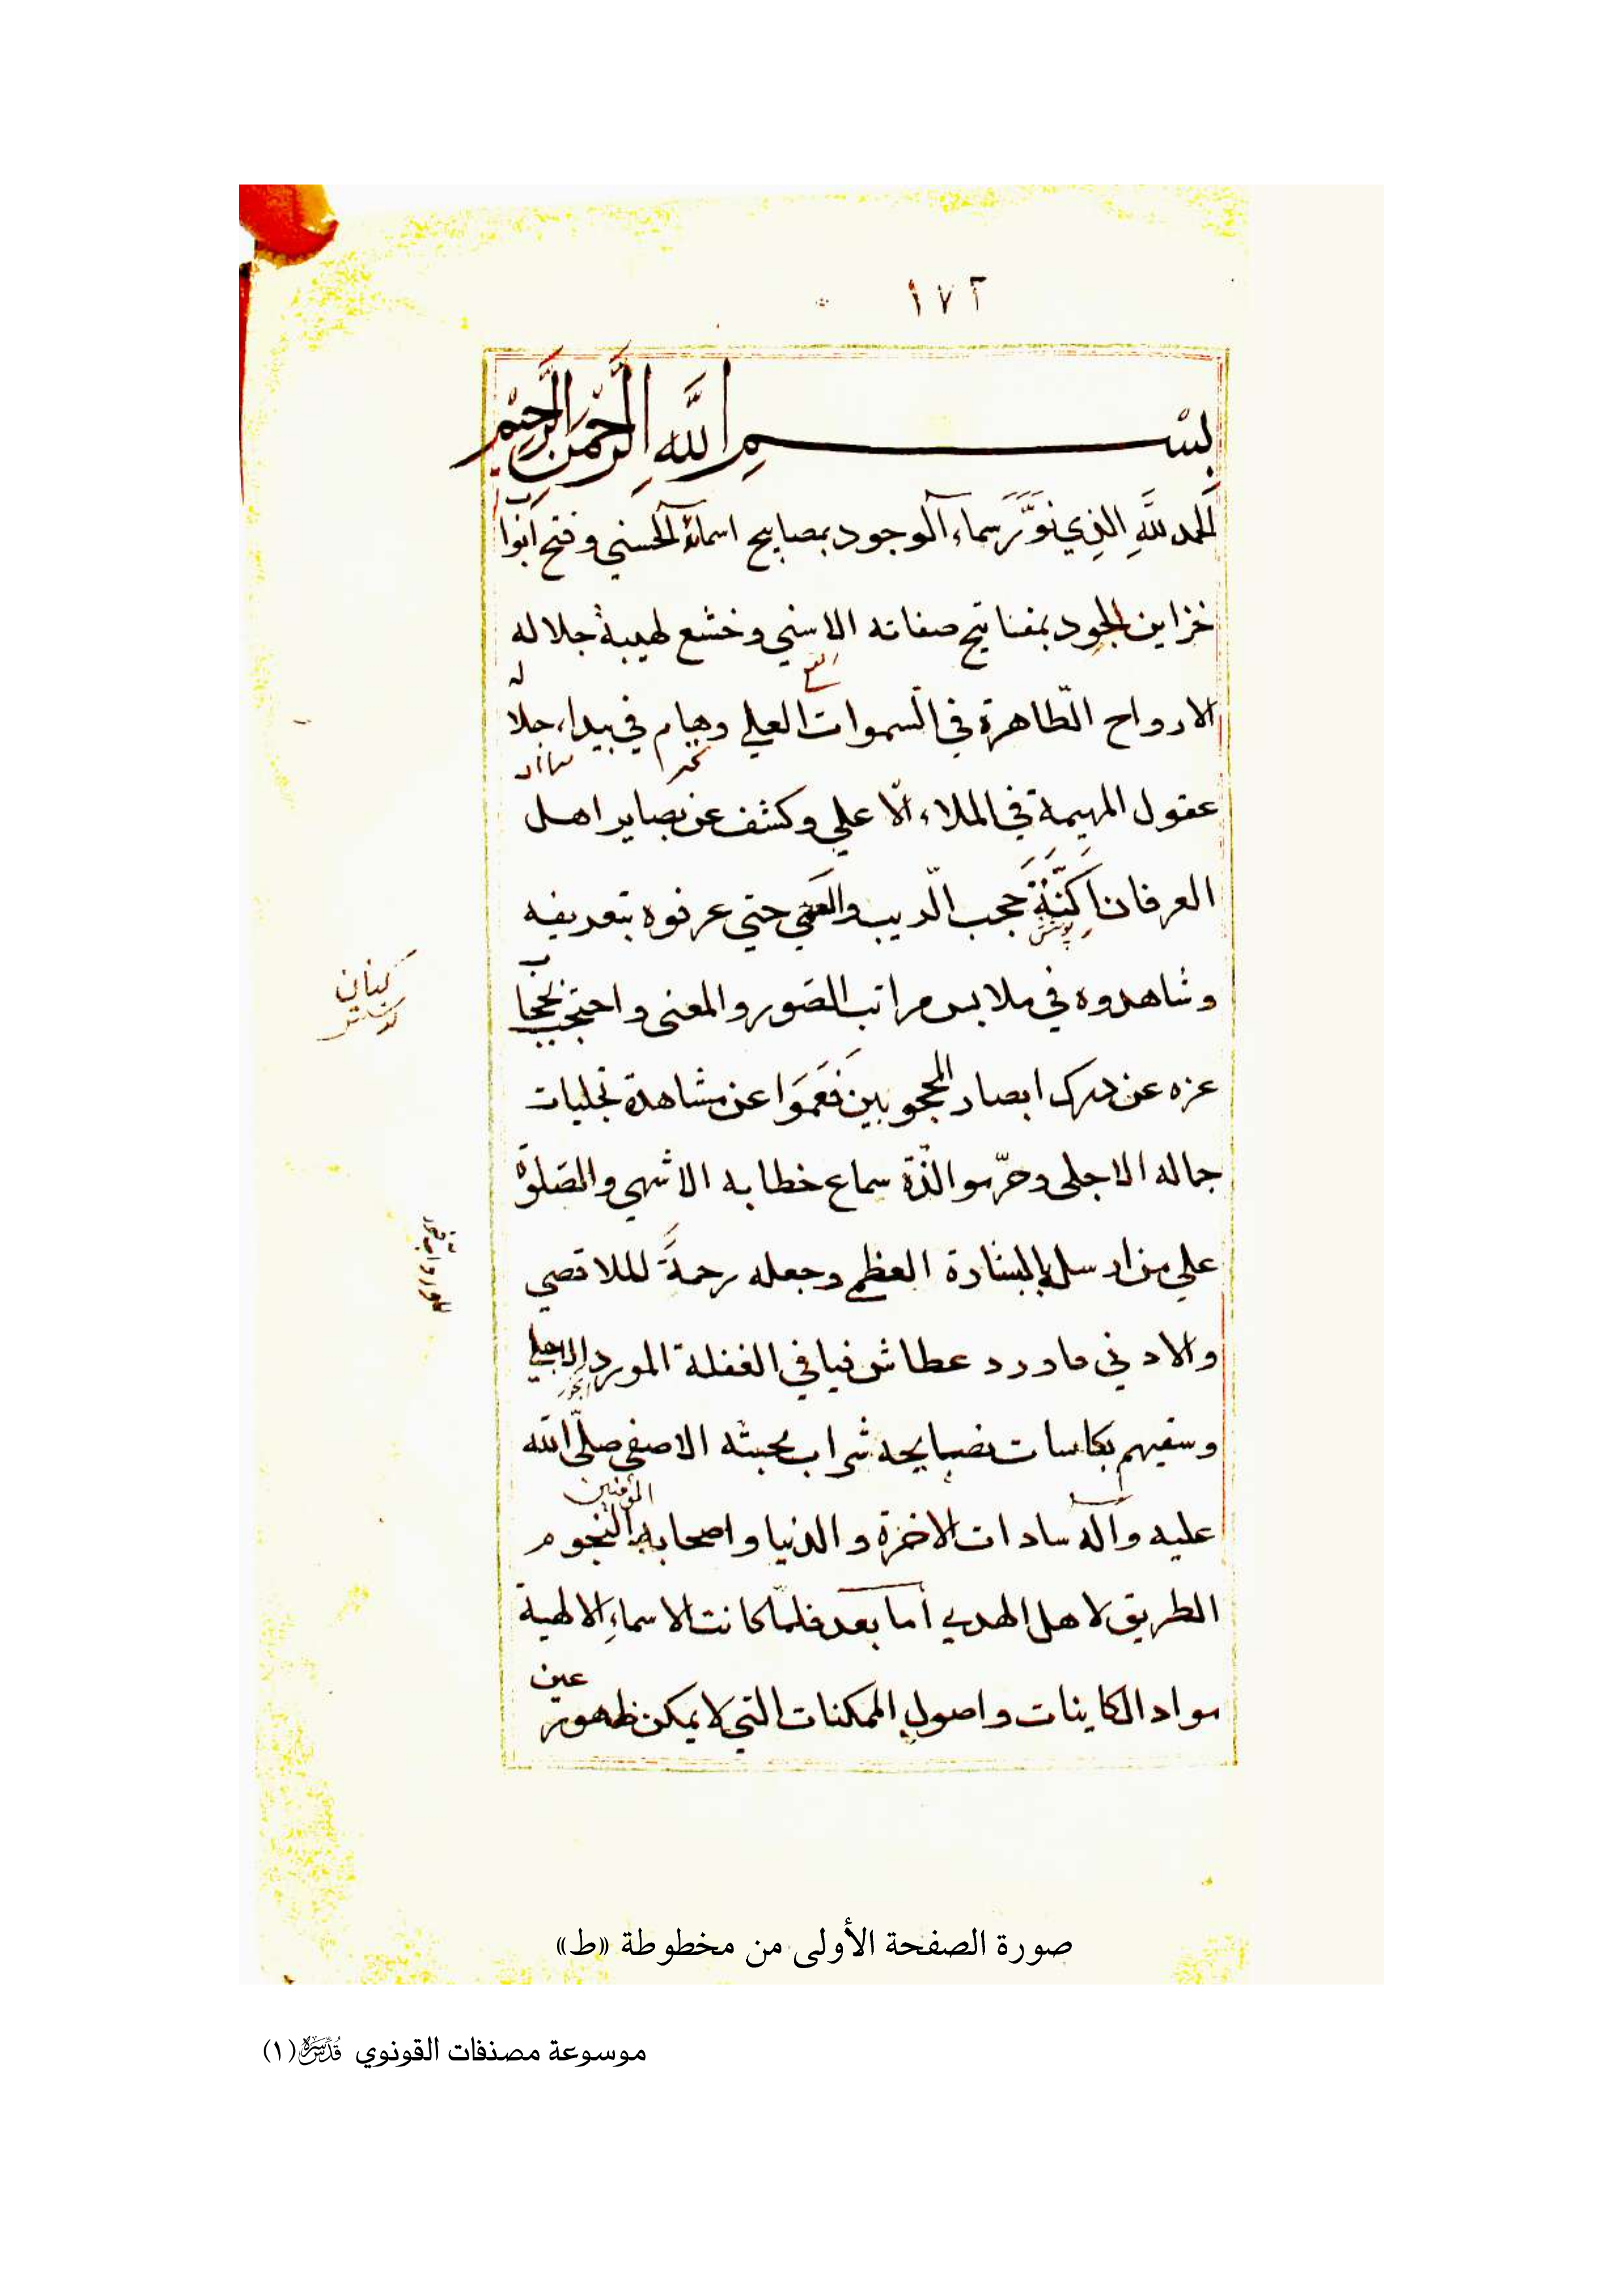 ١٧٢
بسم اللهِ الرَّحمن الرَّحيم
الحمد للهِ الذِي نوَّرَ سماء الوجود بمصابيح اسمائه الحسني و فتح ابواب
خزاين الجود بمفتاتيح صفاته الاسني و خشع لهيبة جلاله
الارواح الطّاهرة في السموات العلي وهيام في بيداء جلاله
عقول المهيمة في الملاء الاعلي و كشف عن بصاير اهل
العرفان اَكِنَّةَ حجب الريب والعمي حتي عرفوه بتعريفه
وشاهدوه في ملابس مراتب الصّور والمعنى و احتجب بحجاب
عزه عن درك ابصار المحجوبين فَعَمَوا عن مشاهدة تجليات
جماله الاجلى وحرّموا لذّة سماع خطابه الاشهي والصّلوة
علي من ارسل بالبشارة العظمي وجعله رحمةً للاقصي
والادني ما ورد عطاش فيافي الغفلة المورد الاحلي
وسقيهم بكاسات نصايحه شراب محبته الاصفي صلّى الله
عليه وآله سادات الاخرة و الدنيا و اصحابه النجوم
المؤمنين
الطريق لاهل الهدي اما بعد فلمّا كانت الاسماءِ الالهية
مواد الكاينات و اصول الممكنات التي لا يمكن ظهور عين
صورة الصفحة الأولى من مخطوطة «ط»
موسوعة مصنفات القونوي قدس سره (١)